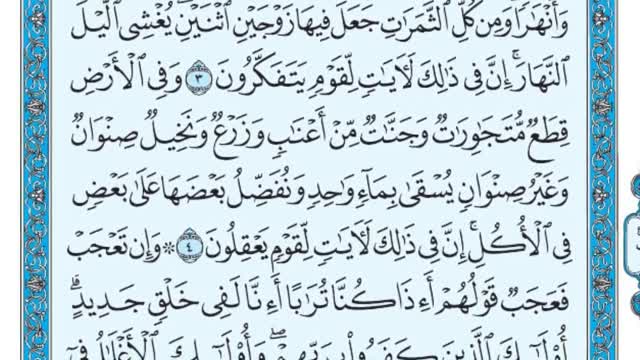 وَأَنْهَٰرًا ۖ وَمِن كُلِّ الثَّمَرَٰتِ جَعَلَ فِيهَا زَوْجَيْنِ اثْنَيْنِ ۖ يُغْشِي الَّيْلَ
النَّهَارَ ۚ إِنَّ فِي ذَٰلِكَ لَآيَاتٍ لِّقَوْمٍ يَتَفَكَّرُونَ ۝٣ وَفِي الْأَرْضِ
قِطَعٌ مُّتَجَٰوِرَٰتٌ وَجَنَّٰتٌ مِّنْ أَعْنَٰبٍ وَزَرْعٌ وَنَخِيلٌ صِنْوَانٌ
وَغَيْرُ صِنْوَانٍ يُسْقَىٰ بِمَاءٍ وَٰحِدٍ وَنُفَضِّلُ بَعْضَهَا عَلَىٰ بَعْضٍ
فِي الْأُكُلِ ۚ إِنَّ فِي ذَٰلِكَ لَآيَاتٍ لِّقَوْمٍ يَعْقِلُونَ ۝٤ ۞ وَإِن تَعْجَبْ
فَعَجَبٌ قَوْلُهُمْ أَءِذَا كُنَّا تُرَٰبًا أَءِنَّا لَفِي خَلْقٍ جَدِيدٍ ۗ
أُو۟لَٰٓئِكَ الَّذِينَ كَفَرُوا۟ بِرَبِّهِمْ ۖ وَأُو۟لَٰٓئِكَ الْأَغْلَٰلُ فِيٓ